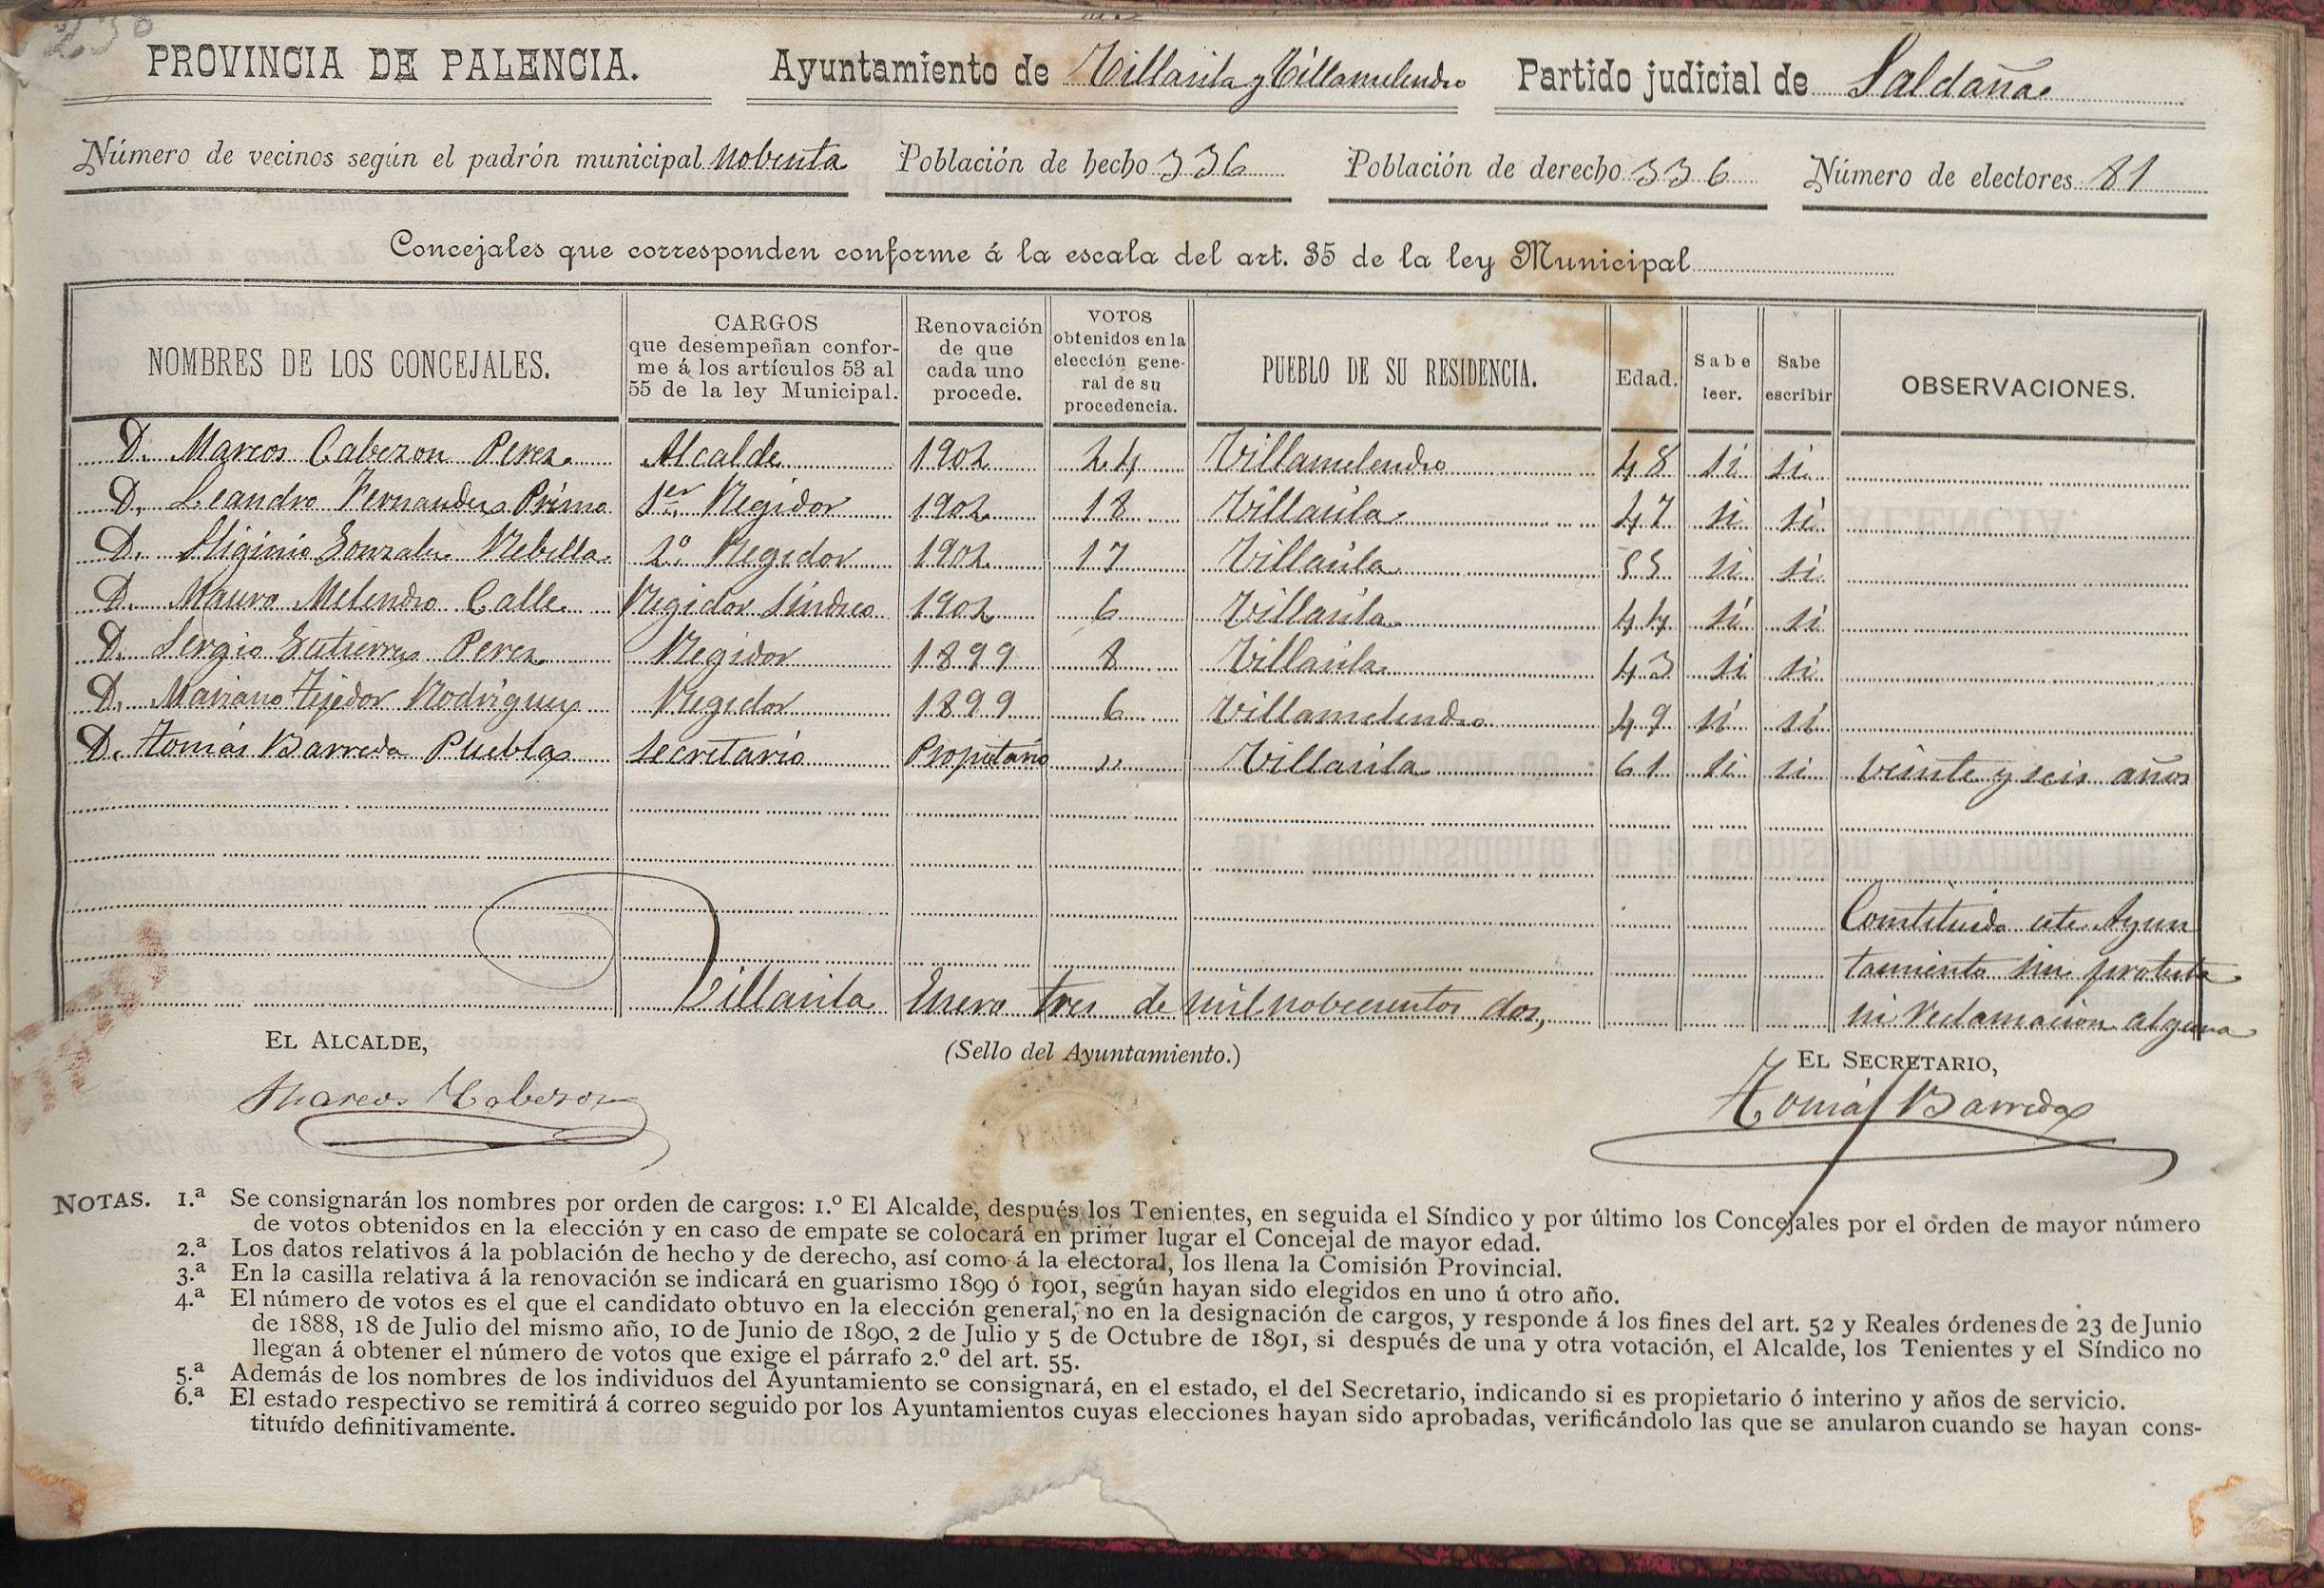 230
PROVINCIA DE PALENCIA. Ayuntamiento de Villasila y Villamelendro Partido judicial de Saldaña
Número de vecinos según el padrón municipal nobenta Población de hecho 336 Población de derecho 336 Número de electores 81
Concejales que corresponden conforme á la escala del art. 35 de la ley Municipal
NOMBRES DE LOS CONCEJALES. CARGOS que desempeñan conforme á los artículos 53 al 55 de la ley Municipal. Renovación de que cada uno procede. VOTOS obtenidos en la elección general de su procedencia. PUEBLO DE SU RESIDENCIA. Edad. Sabe leer. Sabe escribir OBSERVACIONES.
D. Marcos Cabezon Perez Alcalde 1902 24 Villamelendro 48 si si
D. Leandro Fernandez Primo 1er Regidor 1902 18 Villasila 47 si si
D. Higinio Gonzalez Rebilla 2º Regidor 1902 17 Villasila 55 si si
D. Mauro Melendro Calle Regidor Sindico 1902 6 Villasila 44 si si
D. Sergio Gutierrez Perez Regidor 1899 8 Villasila 43 si si
D. Mariano Tejedor Rodriguez Regidor 1899 6 Villamelendro 49 si si
D. Tomás Barreda Puebla secretario Propietario " Villasila 61 si si veinte y seis años
Constituido este Ayun
tamiento sin protesta
Villasila Enero tres de mil nobecientos dos, ni reclamacion alguna
EL ALCALDE, (Sello del Ayuntamiento.) EL SECRETARIO,
Marcos Cabezon Tomás Barreda
NOTAS. 1.ª Se consignarán los nombres por orden de cargos: 1.º El Alcalde, después los Tenientes, en seguida el Síndico y por último los Concejales por el orden de mayor número
de votos obtenidos en la elección y en caso de empate se colocará en primer lugar el Concejal de mayor edad.
2.ª Los datos relativos á la población de hecho y de derecho, así como á la electoral, los llena la Comisión Provincial.
3.ª En la casilla relativa á la renovación se indicará en guarismo 1899 ó 1901, según hayan sido elegidos en uno ú otro año.
4.ª El número de votos es el que el candidato obtuvo en la elección general, no en la designación de cargos, y responde á los fines del art. 52 y Reales órdenes de 23 de Junio
de 1888, 18 de Julio del mismo año, 10 de Junio de 1890, 2 de Julio y 5 de Octubre de 1891, si después de una y otra votación, el Alcalde, los Tenientes y el Síndico no
llegan á obtener el número de votos que exige el párrafo 2.º del art. 55.
5.ª Además de los nombres de los individuos del Ayuntamiento se consignará, en el estado, el del Secretario, indicando si es propietario ó interino y años de servicio.
6.ª El estado respectivo se remitirá á correo seguido por los Ayuntamientos cuyas elecciones hayan sido aprobadas, verificándolo las que se anularon cuando se hayan cons-
tituído definitivamente.